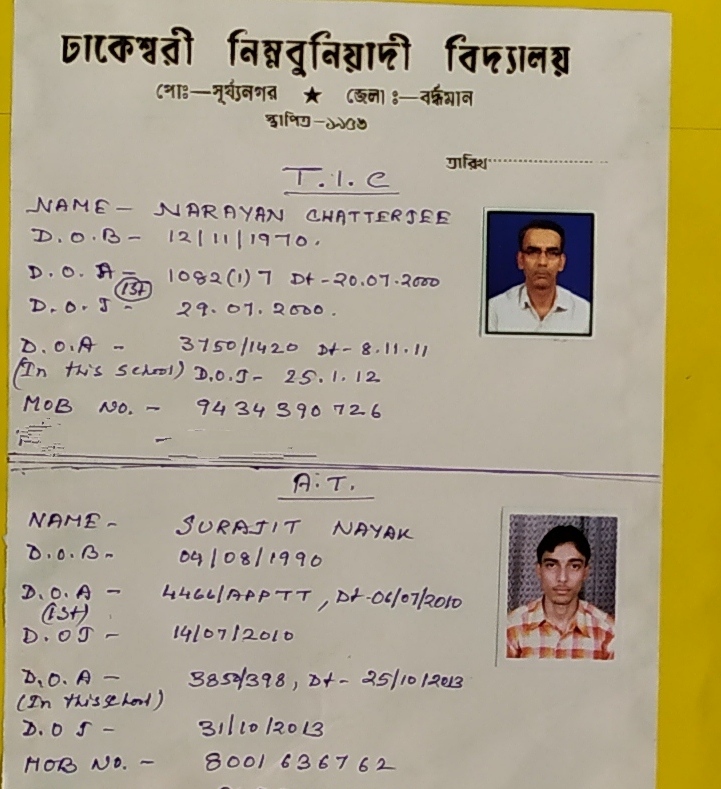 ঢাকেশ্বরী নিম্নবুনিয়াদী বিদ্যালয়
পোঃ—সূর্য্যনগর ★ জেলা ঃ—বর্দ্ধমান
স্থাপিত-১৯৫৬
তারিখ
T.I.C
NAME - NARAYAN CHATTERJEE
D.O.B - 12/11/1970.
D.O.A - 1082(1)7 Dt-20.07.2000
(1st)
D.O.J - 29.07.2000.
D.O.A - 3750/1420 Dt- 8.11.11
(In this school) D.O.J- 25.1.12
MOB NO. - 9434390726
A.T.
NAME - SURAJIT NAYAK
D.O.B - 04/08/1990
D.O.A - 4466/APPTT, Dt-06/07/2010
(1st)
D.OJ - 14/07/2010
D.O.A - 3850/398, Dt- 25/10/2013
(In this school)
D.OJ - 31/10/2013
MOB NO. - 8001636762